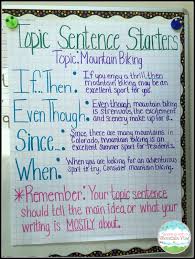 Topic Sentence Starters
Topic: Mountain Biking
If...Then: If you enjoy a thrill, then
mountain biking may be an
excellent sport for you.
Even Though: Even though mountain biking
is strenuous, the excitement
and scenery make up for it.
Since: Since there are many mountains in
Colorado, mountain biking is an
excellent summer sport for residents.
When: When you are looking for an adventurous
sport to try, consider mountain biking.
*Remember: Your topic sentence
should tell the main idea or what your
writing is MOSTLY about.